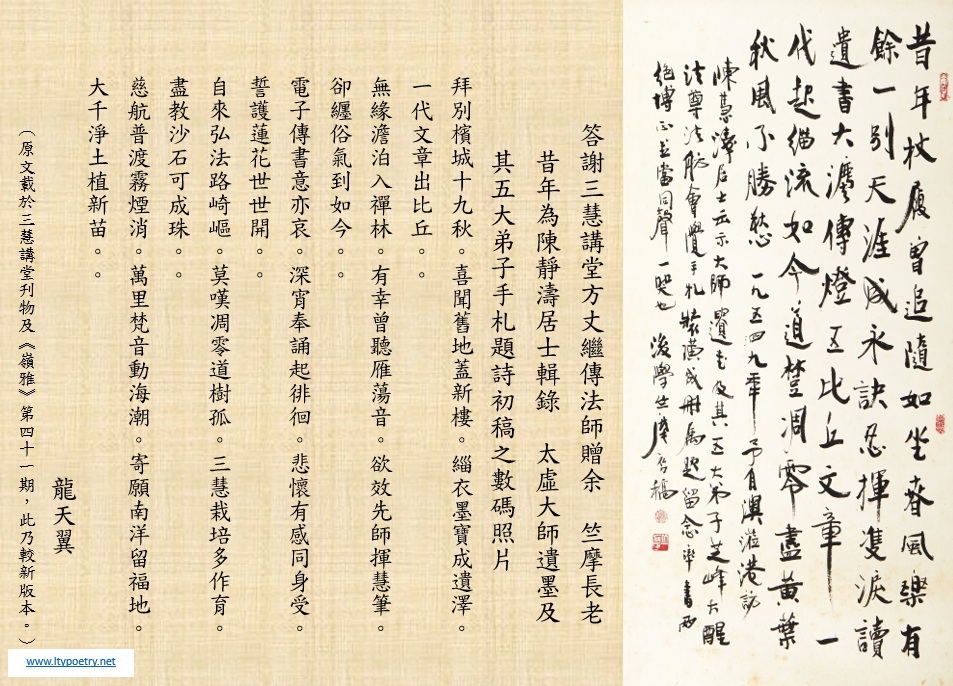 昔年杖履曾追隨如坐春風樂有
餘一別天涯成永訣忍揮雙淚讀
遺書大傳燈五比丘文章一
代起緇流如今道凋零盡黃葉
秋風不勝愁 一九五四九年予自澳蒞港訪
陳慧濤居士出示大師遺書及其五大弟子芝峰大醒
法尊法舫會覺手札裝潢成冊屬題留念率書兩
絕博正並當同聲一哭也 後學竺摩初稿
答謝三慧講堂方丈繼傳法師贈余 竺摩長老
昔年為陳靜濤居士輯錄 太虛大師遺墨及
其五大弟子手札題詩初稿之數碼照片
拜別檳城十九秋。喜聞舊地蓋新樓。緇衣墨寶成遺澤。
一代文章出比丘。。
無緣澹泊入禪林。有幸曾聽雁蕩音。欲效先師揮慧筆。
卻纏俗氣到如今。。
電子傳書意亦哀。深宵奉誦起徘徊。悲懷有感同身受。
誓護蓮花世世開。。
自來弘法路崎嶇。莫嘆凋零道樹孤。三慧栽培多作育。
盡教沙石可成珠。。
慈航普渡霧煙消。萬里梵音動海潮。寄願南洋留福地。
大千淨土植新苗。。
龍天翼
(原文載於三慧講堂刊物及《嶺雅》第四十一期，此乃較新版本。)
www.ltypoetry.net